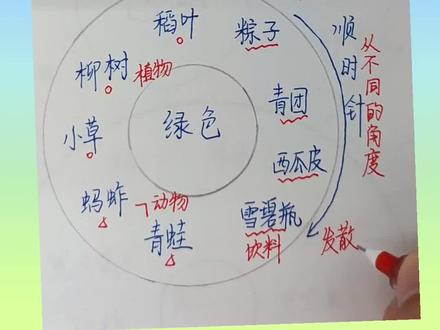 稻叶
粽子
顺时针
从不同的角度
柳树
植物
青团
绿色
小草
西瓜皮
蚂蚱
动物
雪碧瓶
青蛙
饮料
发散